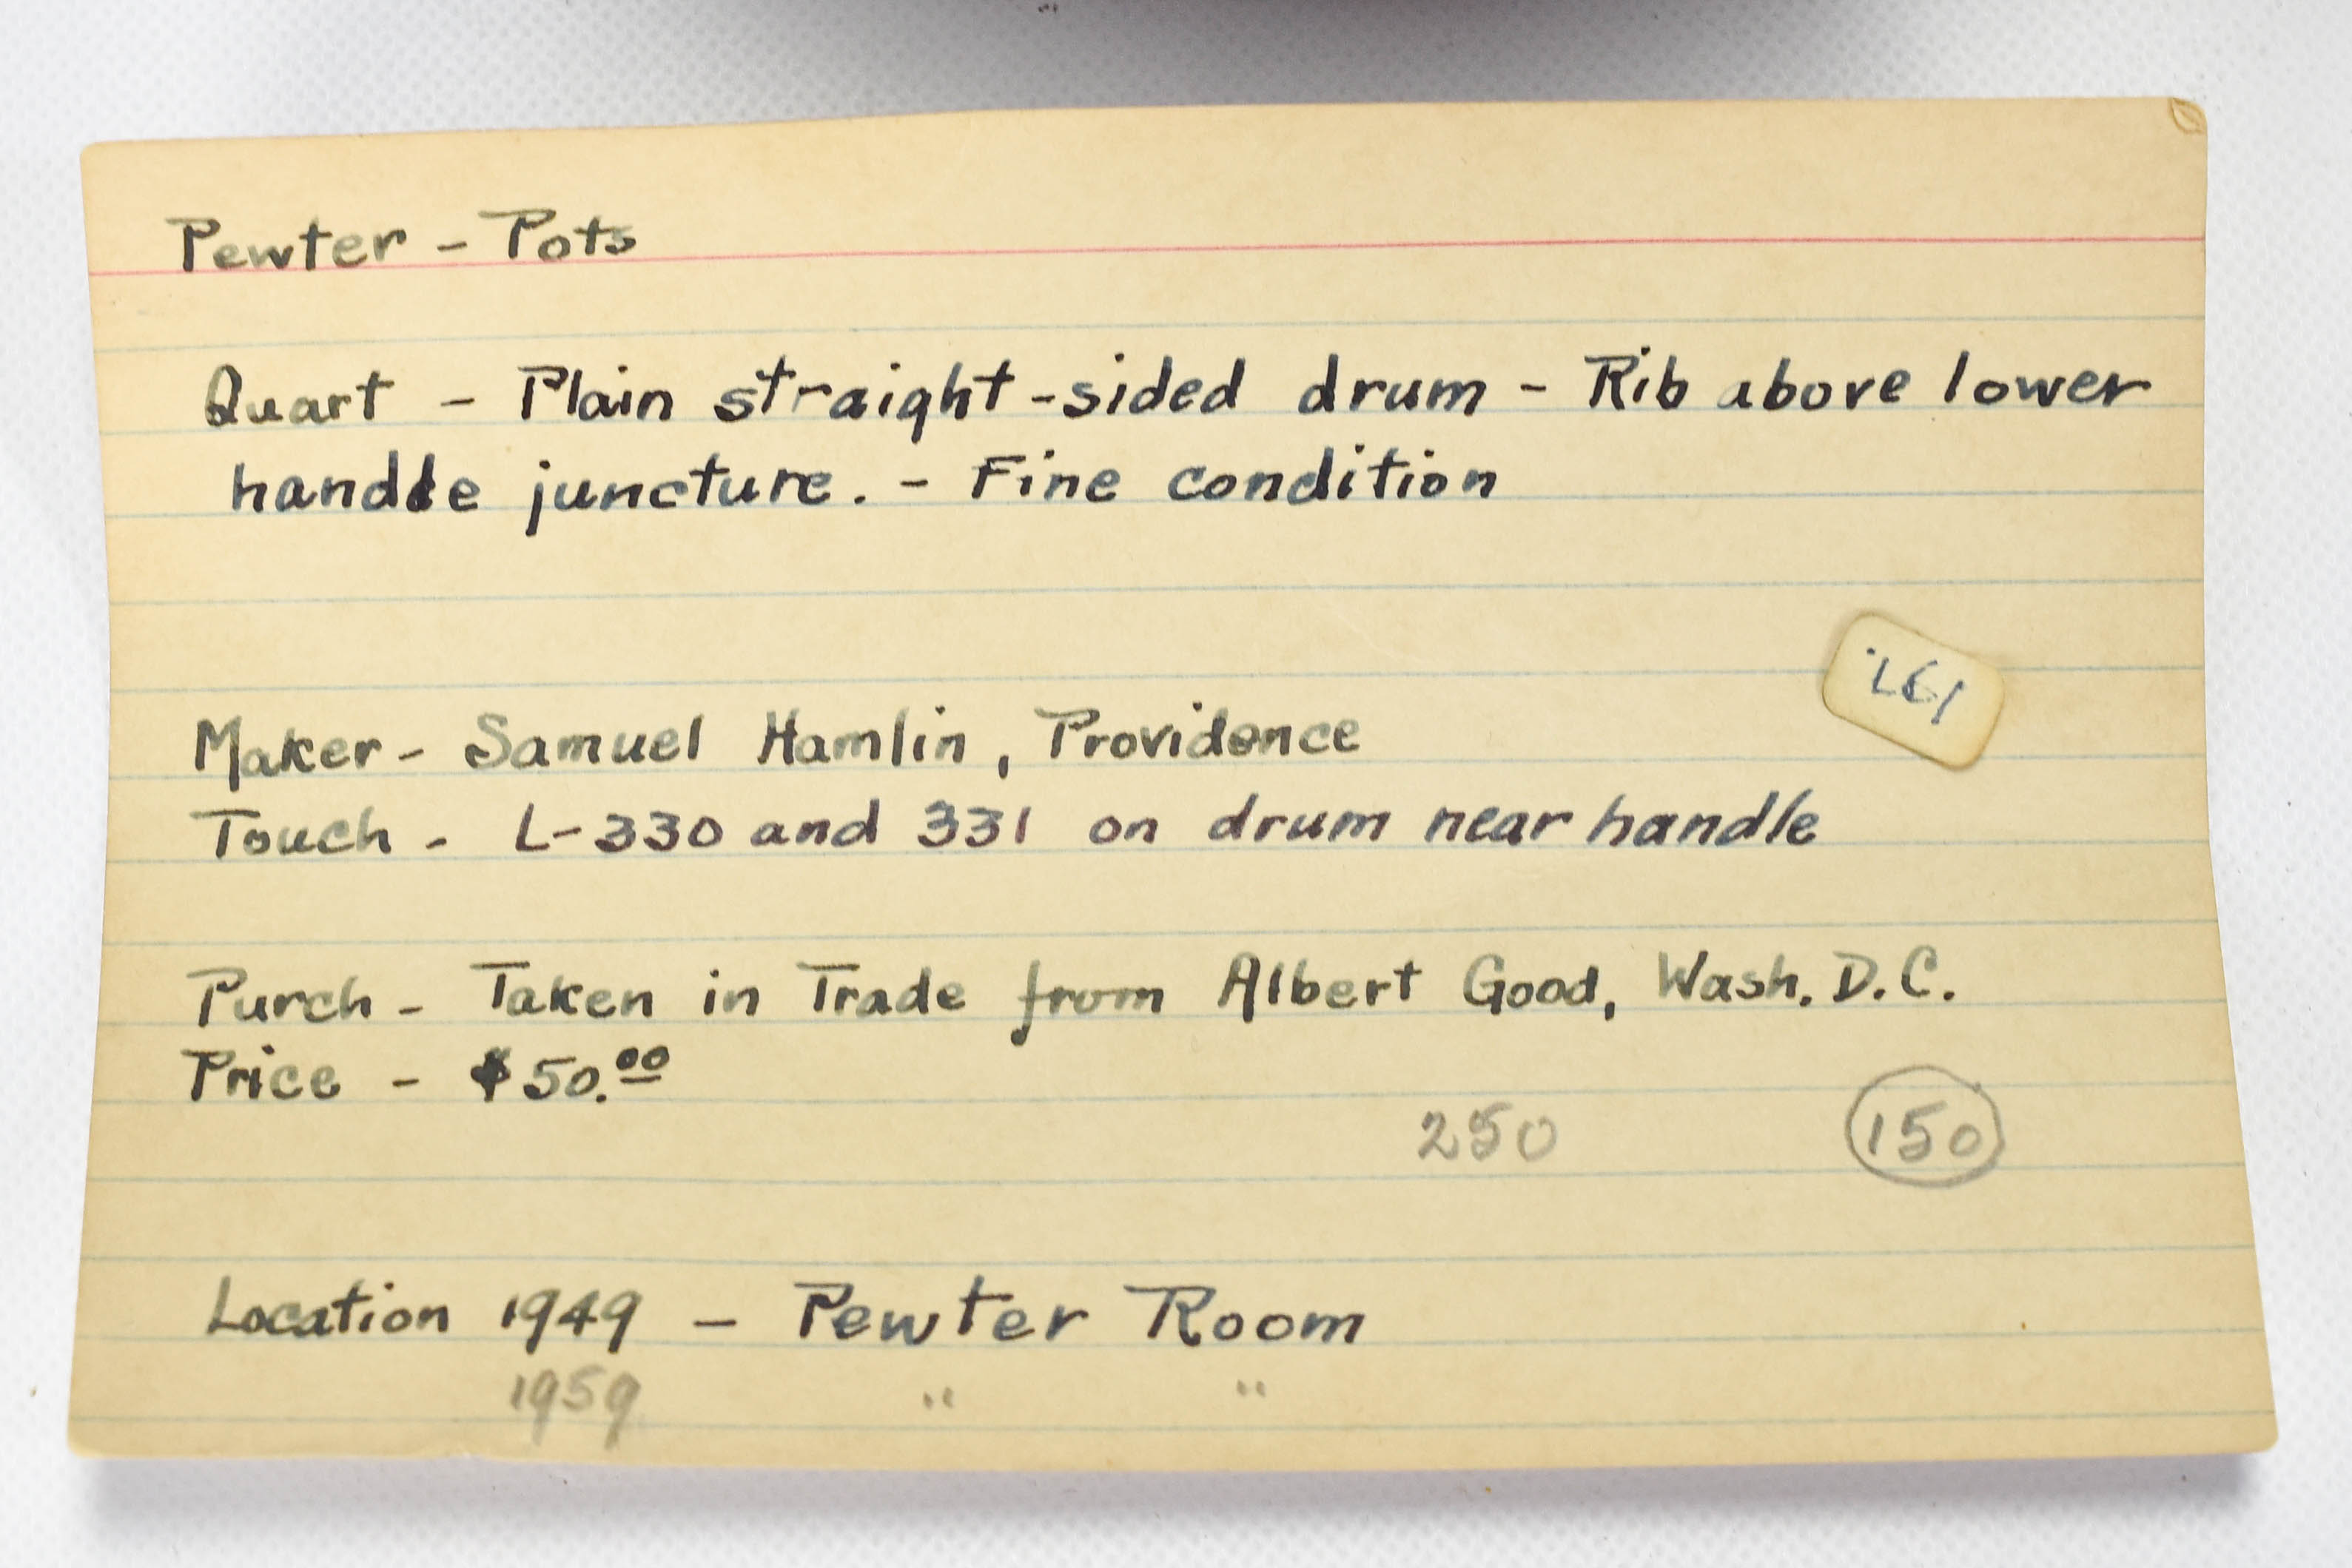 Pewter - Pots
Quart - Plain straight-sided drum - Rib above lower
handle juncture. - Fine condition
Maker- Samuel Hamlin, Providence
Touch - L-330 and 331 on drum near handle
Purch - Taken in Trade from Albert Good, Wash. D.C.
Price - $50.00
250 150
Location 1949 - Pewter Room
1959 " "